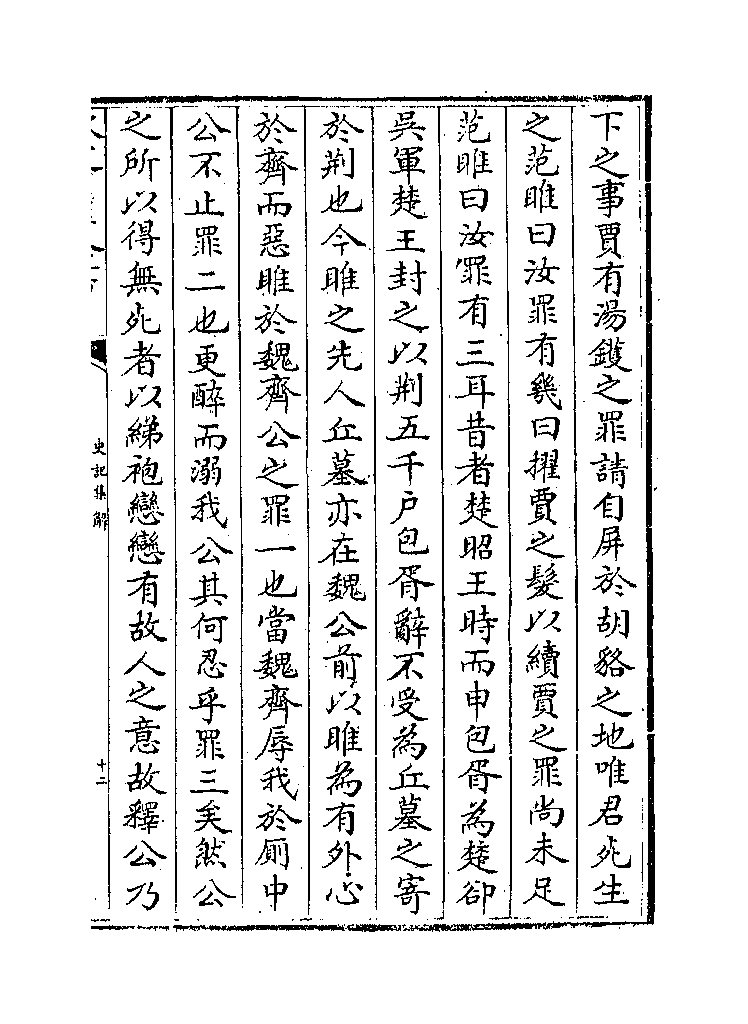 下之事賈有湯鑊之罪請自屏於胡貉之地唯君死生
之范睢曰汝罪有幾曰擢賈之髮以續賈之罪尚未足
范睢曰汝罪有三耳昔者楚昭王時而申包胥為楚卻
吳軍楚王封之以荆五千户包胥辭不受為丘墓之寄
於荆也今睢之先人丘墓亦在魏公前以睢為有外心
於齊而惡睢於魏齊公之罪一也當魏齊辱我於厠中
公不止罪二也更醉而溺我公其何忍乎罪三矣然公
之所以得無死者以綈袍戀戀有故人之意故釋公乃
史記集解
十二